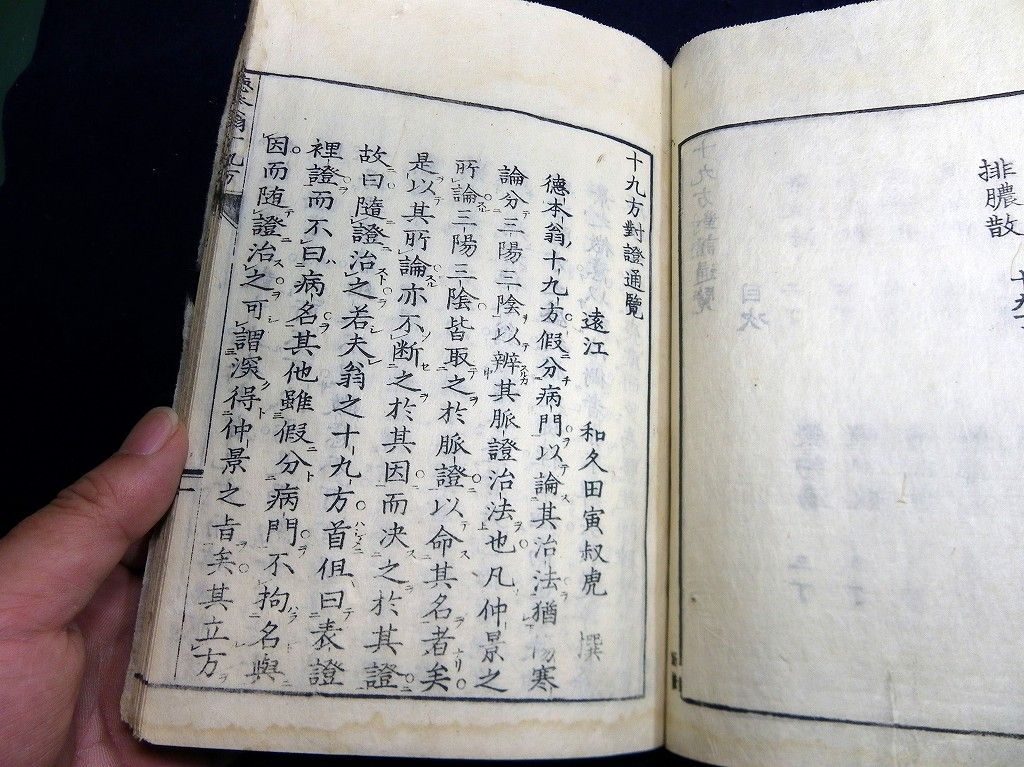 排膿散 十九
十九方對證通覽
遠江 和久田寅叔虎 撰
德本翁十九方假分病門以論其治法猶傷寒
論分三陽三陰以辨其脈證治法也凡仲景之
所論三陽三陰皆取之於脈證以命其名者矣
是以其所論亦不断之於其因而决之於其證
故曰隨證治之若夫翁之十九方首但曰表證
裡證而不曰病名其他雖假分病門不拘名與
因而随證治之可謂深得仲景之旨矣其立方
德本翁十九方